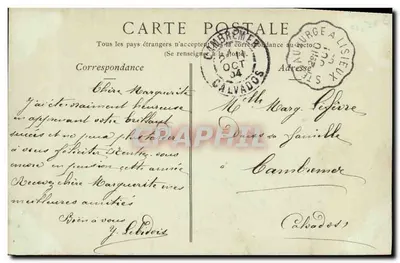 CARTE POSTALE
Tous les pays étrangers n'acceptent pas la correspondance au recto
(Se renseigner à la poste)
Correspondance
Adresse
CAMBREMER
OCT
04
CALVADOS
A LISIEUX
Chère Marguerite
J'ai été vraiment heureuse
en apprenant votre brillant
succès et
à vous féliciter. Êtes-vous
encore en pension cette année
Recevez chère Marguerite mes
meilleures amitiés
Bien à vous
Y.
Marg. Lefèvre
Dans sa famille
à Cambremer
Calvados
Delcampe